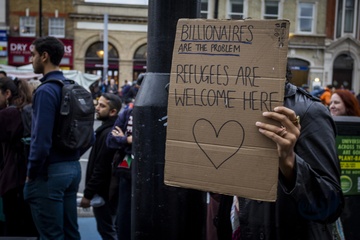 BILLIONAIRES
ARE THE PROBLEM
REFUGEES ARE
WELCOME HERE
DRY